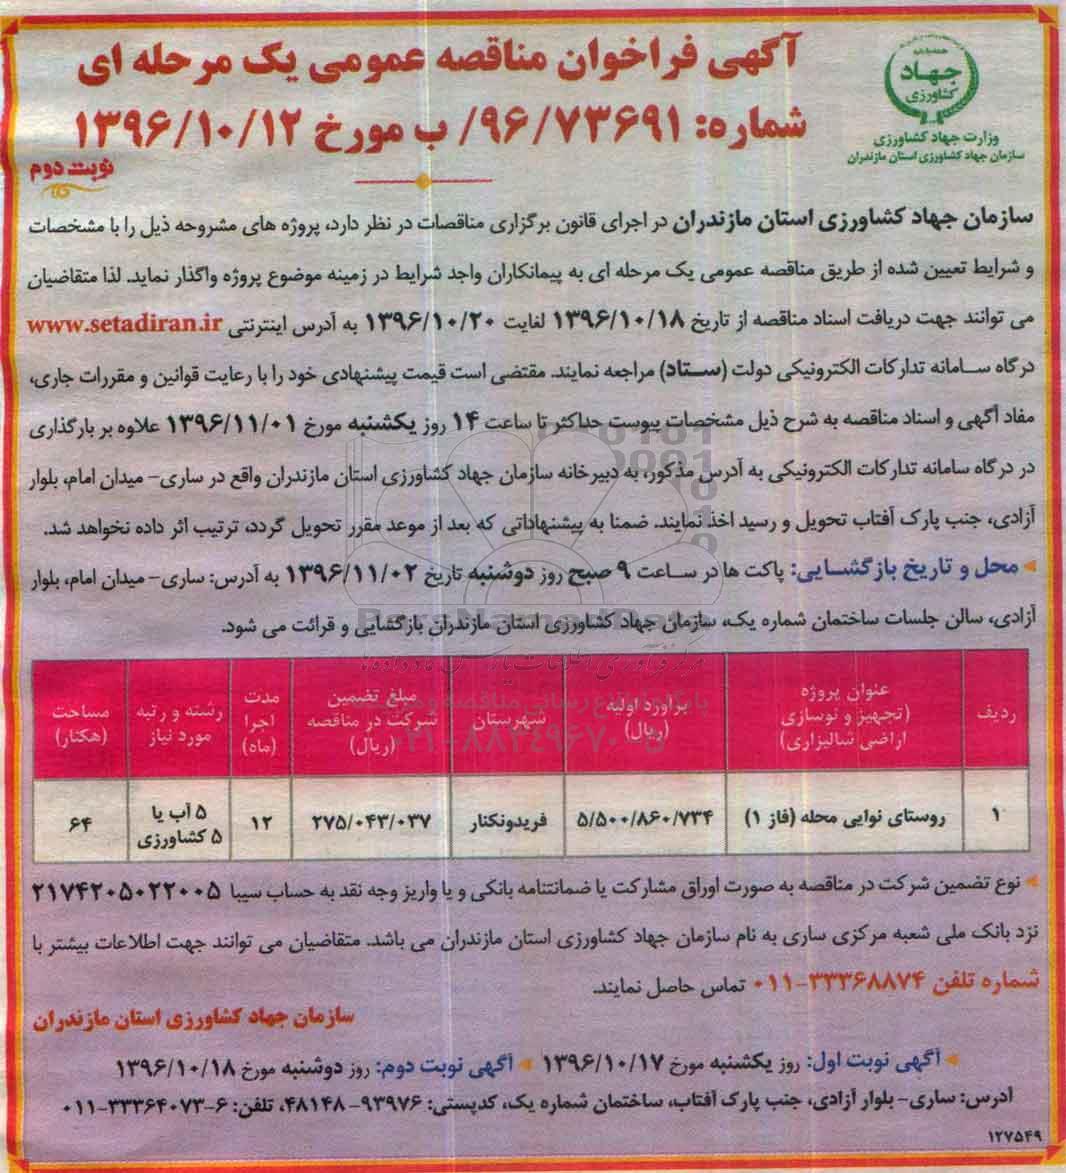 آگهی فراخوان مناقصه عمومی یک مرحله ای
شماره: ۹۶/۷۳۶۹۱/ ب مورخ ۱۳۹۶/۱۰/۱۲
نوبت دوم
جهاد
کشاورزی
وزارت جهاد کشاورزی
سازمان جهاد کشاورزی استان مازندران
سازمان جهاد کشاورزی استان مازندران در اجرای قانون برگزاری مناقصات در نظر دارد، پروژه های مشروحه ذیل را با مشخصات
و شرایط تعیین شده از طریق مناقصه عمومی یک مرحله ای به پیمانکاران واجد شرایط در زمینه موضوع پروژه واگذار نماید. لذا متقاضیان
می توانند جهت دریافت اسناد مناقصه از تاریخ ۱۳۹۶/۱۰/۱۸ لغایت ۱۳۹۶/۱۰/۲۰ به آدرس اینترنتی www.setadiran.ir
درگاه سامانه تدارکات الکترونیکی دولت (ستاد) مراجعه نمایند. مقتضی است قیمت پیشنهادی خود را با رعایت قوانین و مقررات جاری،
مفاد آگهی و اسناد مناقصه به شرح ذیل مشخصات پیوست حداکثر تا ساعت ۱۴ روز یکشنبه مورخ ۱۳۹۶/۱۱/۰۱ علاوه بر بارگذاری
در درگاه سامانه تدارکات الکترونیکی به آدرس مذکور، به دبیرخانه سازمان جهاد کشاورزی استان مازندران واقع در ساری- میدان امام، بلوار
آزادی، جنب پارک آفتاب تحویل و رسید اخذ نمایند. ضمنا به پیشنهاداتی که بعد از موعد مقرر تحویل گردد، ترتیب اثر داده نخواهد شد.
محل و تاریخ بازگشایی: پاکت ها در ساعت ۹ صبح روز دوشنبه تاریخ ۱۳۹۶/۱۱/۰۲ به آدرس: ساری- میدان امام، بلوار
آزادی، سالن جلسات ساختمان شماره یک، سازمان جهاد کشاورزی استان مازندران بازگشایی و قرائت می شود.
ردیف | عنوان پروژه (تجهیز و نوسازی اراضی شالیزاری) | برآورد اولیه (ریال) | شهرستان | مبلغ تضمین شرکت در مناقصه (ریال) | مدت اجرا (ماه) | رشته و رتبه مورد نیاز | مساحت (هکتار)
۱ | روستای نوایی محله (فاز ۱) | ۵/۵۰۰/۸۶۰/۷۳۴ | فریدونکنار | ۲۷۵/۰۴۳/۰۳۷ | ۱۲ | ۵ آب یا ۵ کشاورزی | ۶۴
نوع تضمین شرکت در مناقصه به صورت اوراق مشارکت یا ضمانتنامه بانکی و یا واریز وجه نقد به حساب سیبا ۲۱۷۴۲۰۵۰۲۲۰۰۵
نزد بانک ملی شعبه مرکزی ساری به نام سازمان جهاد کشاورزی استان مازندران می باشد. متقاضیان می توانند جهت اطلاعات بیشتر با
شماره تلفن ۳۳۳۶۸۸۷۴-۰۱۱ تماس حاصل نمایند.
سازمان جهاد کشاورزی استان مازندران
آگهی نوبت اول: روز یکشنبه مورخ ۱۳۹۶/۱۰/۱۷ آگهی نوبت دوم: روز دوشنبه مورخ ۱۳۹۶/۱۰/۱۸
آدرس: ساری- بلوار آزادی، جنب پارک آفتاب، ساختمان شماره یک، کدپستی: ۹۳۹۷۶-۴۸۱۴۸، تلفن: ۶-۳۳۳۶۴۰۷۳-۰۱۱
۱۲۷۵۴۹